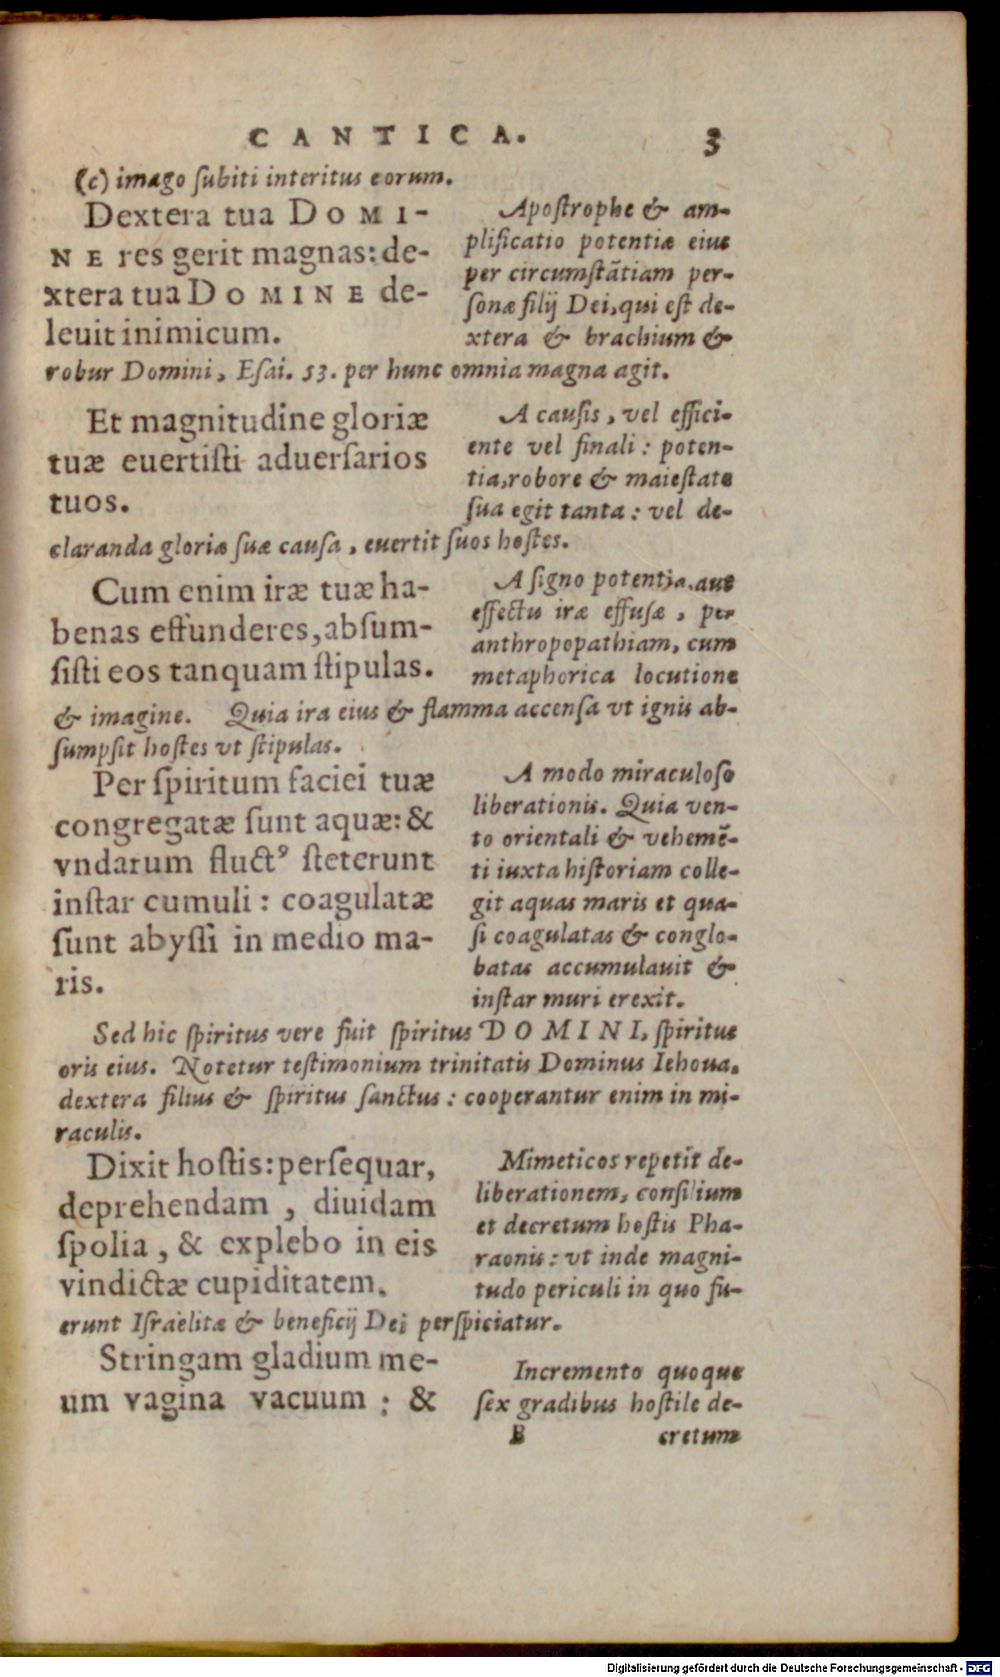 CANTICA. 3
(c) imago ſubiti interitus eorum.
Dextera tua DOMI-
NE res gerit magnas: de-
xtera tua DOMINE de-
leuit inimicum.
Apoſtrophe & am-
plificatio potentiæ eius
per circumſtãtiam per-
ſonæ filij Dei, qui eſt de-
xtera & brachium &
robur Domini, Eſai. 53. per hunc omnia magna agit.
Et magnitudine gloriæ
tuæ euertiſti aduerſarios
tuos.
A cauſis, vel effici-
ente vel finali: poten-
tia, robore & maieſtate
ſua egit tanta: vel de-
claranda gloriæ ſuæ cauſa, euertit ſuos hoſtes.
Cum enim iræ tuæ ha-
benas effunderes, abſum-
ſiſti eos tanquam ſtipulas.
A ſigno potentiæ aut
effectu iræ effuſæ, per
anthropopathiam, cum
metaphorica locutione
& imagine. Quia ira eius & flamma accenſa vt ignis ab-
ſumpſit hoſtes vt ſtipulas.
Per ſpiritum faciei tuæ
congregatæ ſunt aquæ: &
vndarum fluctꝰ ſteterunt
inſtar cumuli: coagulatæ
ſunt abyſſi in medio ma-
ris.
A modo miraculoſo
liberationis. Quia ven-
to orientali & vehemẽ-
ti iuxta hiſtoriam colle-
git aquas maris et qua-
ſi coagulatas & conglo-
batas accumulauit &
inſtar muri erexit.
Sed hic ſpiritus vere fuit ſpiritus DOMINI, ſpiritus
oris eius. Notetur teſtimonium trinitatis Dominus Iehoua,
dextera filius & ſpiritus ſanctus: cooperantur enim in mi-
raculis.
Dixit hoſtis: perſequar,
deprehendam, diuidam
ſpolia, & explebo in eis
vindictæ cupiditatem.
Mimeticos repetit de-
liberationem, conſilium
et decretum hoſtis Pha-
raonis: vt inde magni-
tudo periculi in quo fu-
erunt Iſraëlitæ & beneficij Dei perſpiciatur.
Stringam gladium me-
um vagina vacuum: &
Incremento quoque
ſex gradibus hoſtile de-
B cretum
Digitalisierung gefördert durch die Deutsche Forschungsgemeinschaft - DFG